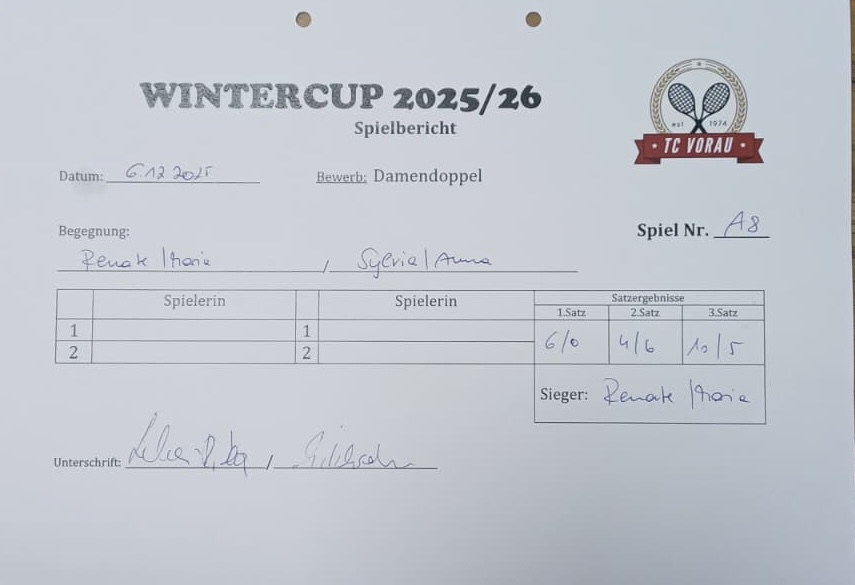 WINTERCUP 2025/26
Spielbericht
est 1974
TC VORAU
Datum: 6.12 2025
Bewerb: Damendoppel
Begegnung:
Spiel Nr. A8
Renate / Maria / Sylvia / Anna
Spielerin Spielerin Satzergebnisse
1.Satz 2.Satz 3.Satz
1 1
2 2
6/0 4/6 10/5
Sieger: Renate / Maria
Unterschrift: